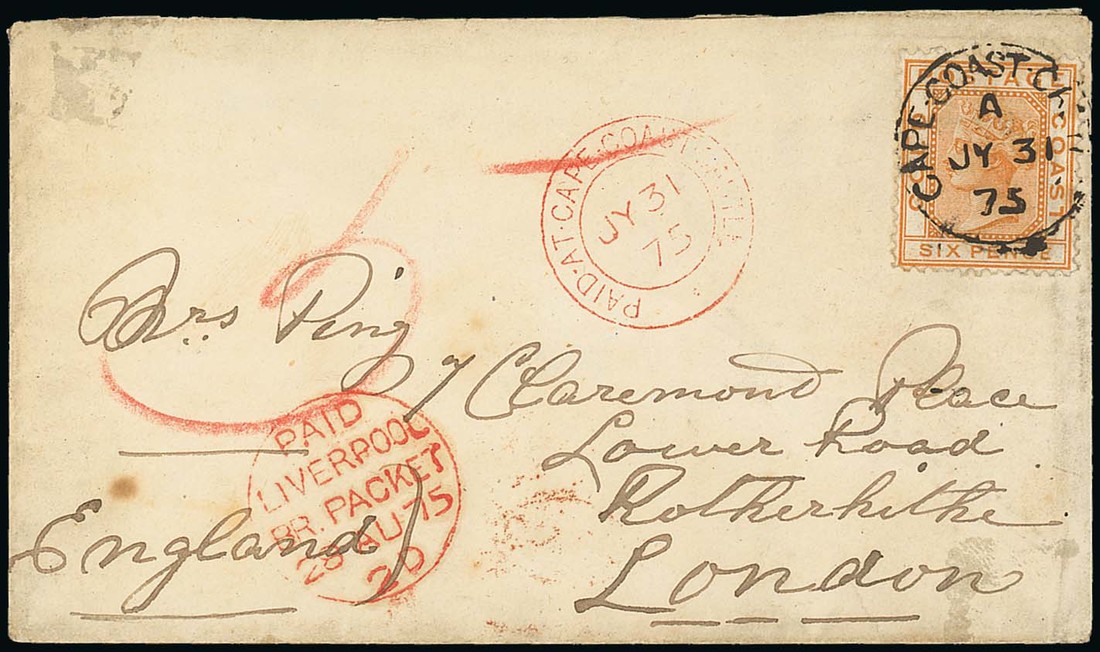 POSTAGE
GOLD COAST
SIX PENCE
CAPE·COAST·CASTLE
A
JY 31
75
PAID·AT·CAPE·COAST·CASTLE
JY 31
75
5
Mrs. Ping
7 Claremond Place
Lower Road
Rotherhithe
London
England
PAID
LIVERPOOL
BR. PACKET
28 AU 75
20